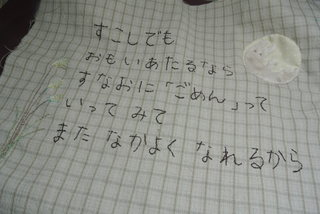 すこしでも
おもいあたるなら
すなおに「ごめん」って
いって みて
また なかよく なれるから